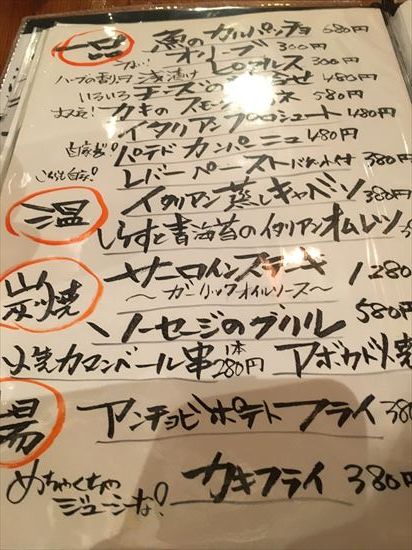 一品 魚のカルパッチョ 580円
オリーブ 300円
うまい! ピクルス 300円
ハーブの香り 浅漬け
いろいろ チーズの 480円
カキのスモーク 580円
イタリアンプロシュート 480円
自家製! パテドカンパーニュ 480円
レバーペースト バゲット付 380円
温 イタリアン蒸しキャベツ 380円
しらすと青海苔のイタリアンオムレツ
炭焼 サーロインステーキ 1280
～ガーリックオイルソース～
ソーセージのグリル 580円
カマンベール串 1本 280円 アボカド
揚 アンチョビポテトフライ 380
めちゃくちゃ ジューシーな! カキフライ 380円